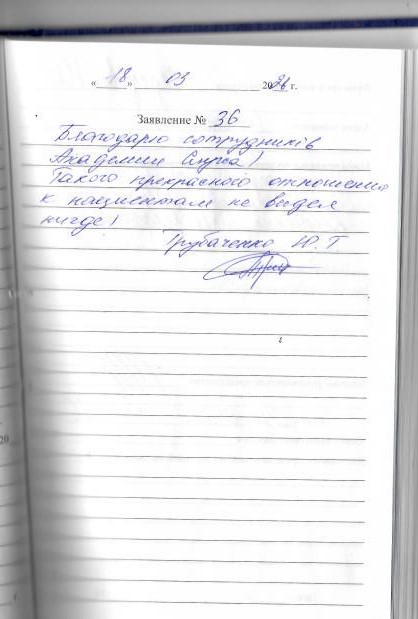 « 18 » 03 2026 г.
Заявление № 36
Благодарю сотрудников
Академии Слуха!
Такого прекрасного отношения
к пациентам не видел
нигде!
Трубаченко Ю. Г
20